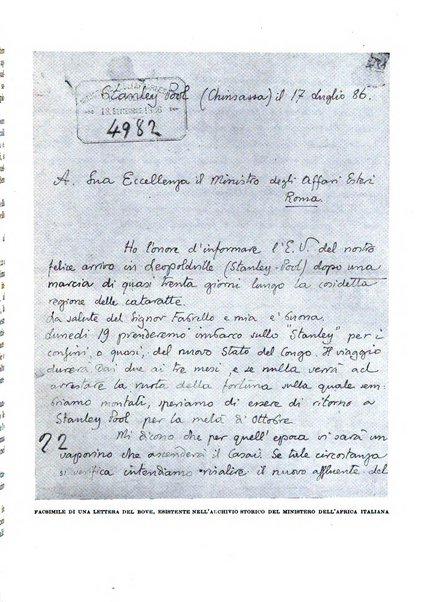 Stanley Pool (Chinsassa) il 17 Luglio 86.
4982
A. Sua Eccellenza il Ministro degli Affari Esteri
Roma.
Ho l'onore d'informare l'E. V. del nostro
felice arrivo in Leopoldville (Stanley-Pool) dopo una
marcia di quasi trenta giorni lungo la cosidetta
regione delle cataratte.
La salute del Signor Fabrello e mia è buona.
Lunedì 19 prenderemo imbarco sullo "Stanley" per i
confini, o quasi, del nuovo Stato del Congo. Il viaggio
durerà dai due ai tre mesi, e se nulla verrà ad
arrestare la ruota della fortuna sulla quale sem-
briamo montati, speriamo di essere di ritorno a
Stanley Pool per la metà di Ottobre.
22
Mi dicono che per quell'epoca vi sarà un
vaporino che ascenderà il Casai. Se tale circostanza
si verifica intendiamo risalire il nuovo affluente del
FACSIMILE DI UNA LETTERA DEL BOVE, ESISTENTE NELL'ARCHIVIO STORICO DEL MINISTERO DELL'AFRICA ITALIANA